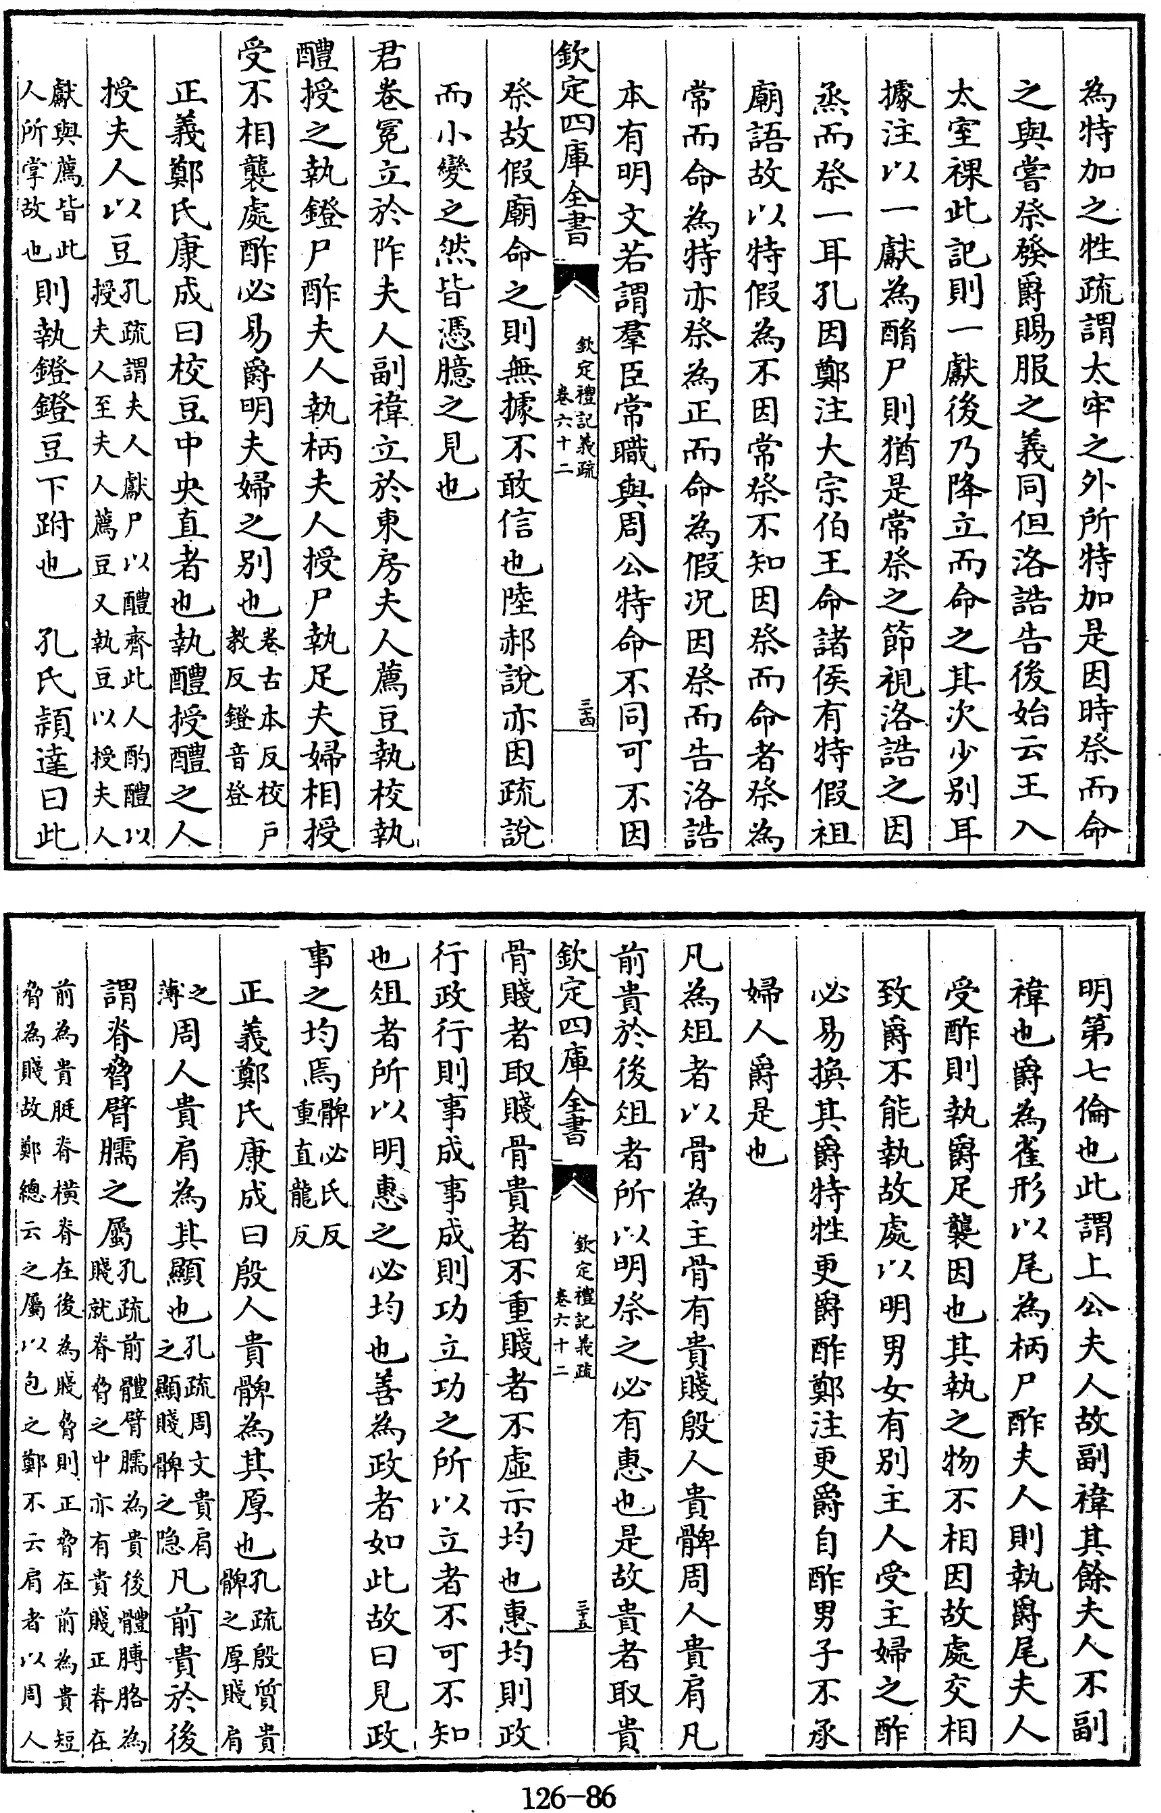 為特加之牲疏謂太牢之外所特加是因時祭而命
之與嘗祭發爵賜服之義同但洛誥告後始云王入
太室祼此記則一獻後乃降立而命之其次少别耳
據注以一獻為酳尸則猶是常祭之節視洛誥之因
烝而祭一耳孔因鄭注大宗伯王命諸侯有特假祖
廟語故以特假為不因常祭不知因祭而命者祭為
常而命為特亦祭為正而命為假况因祭而告洛誥
本有明文若謂羣臣常職與周公特命不同可不因
欽定四庫全書
欽定禮記義疏
卷六十二
三十四
祭故假廟命之則無據不敢信也陸郝說亦因疏說
而小變之然皆憑臆之見也
君卷冕立於阼夫人副褘立於東房夫人薦豆執校執
醴授之執鐙尸酢夫人執柄夫人授尸執足夫婦相授
受不相襲處酢必易爵明夫婦之别也卷古本反校戶
教反鐙音登
正義鄭氏康成曰校豆中央直者也執醴授醴之人
授夫人以豆孔疏謂夫人獻尸以醴齊此人酌醴以
授夫人至夫人薦豆又執豆以授夫人
獻與薦皆此
人所掌故也則執鐙鐙豆下跗也　孔氏穎達曰此
明第七倫也此謂上公夫人故副褘其餘夫人不副
褘也爵為雀形以尾為柄尸酢夫人則執爵尾夫人
受酢則執爵足襲因也其執之物不相因故處交相
致爵不能執故處以明男女有别主人受主婦之酢
必易換其爵特牲更爵酢鄭注更爵自酢男子不承
婦人爵是也
凡為俎者以骨為主骨有貴賤殷人貴髀周人貴肩凡
前貴於後俎者所以明祭之必有惠也是故貴者取貴
欽定四庫全書
欽定禮記義疏
卷六十二
三十五
骨賤者取賤骨貴者不重賤者不虛示均也惠均則政
行政行則事成事成則功立功之所以立者不可不知
也俎者所以明惠之必均也善為政者如此故曰見政
事之均焉髀必氏反
重直龍反
正義鄭氏康成曰殷人貴髀為其厚也孔疏殷質貴
髀之厚賤肩
之薄周人貴肩為其顯也孔疏周文貴肩
之顯賤髀之隐凡前貴於後
謂脊脅臂臑之屬孔疏前體臂臑為貴後體膊胳為
賤就脊脅之中亦有貴賤正脊在
前為貴脡脊橫脊在後為賤脅則正脅在前為貴短
脅為賤故鄭總云之屬以包之鄭不云肩者以周人
126-86